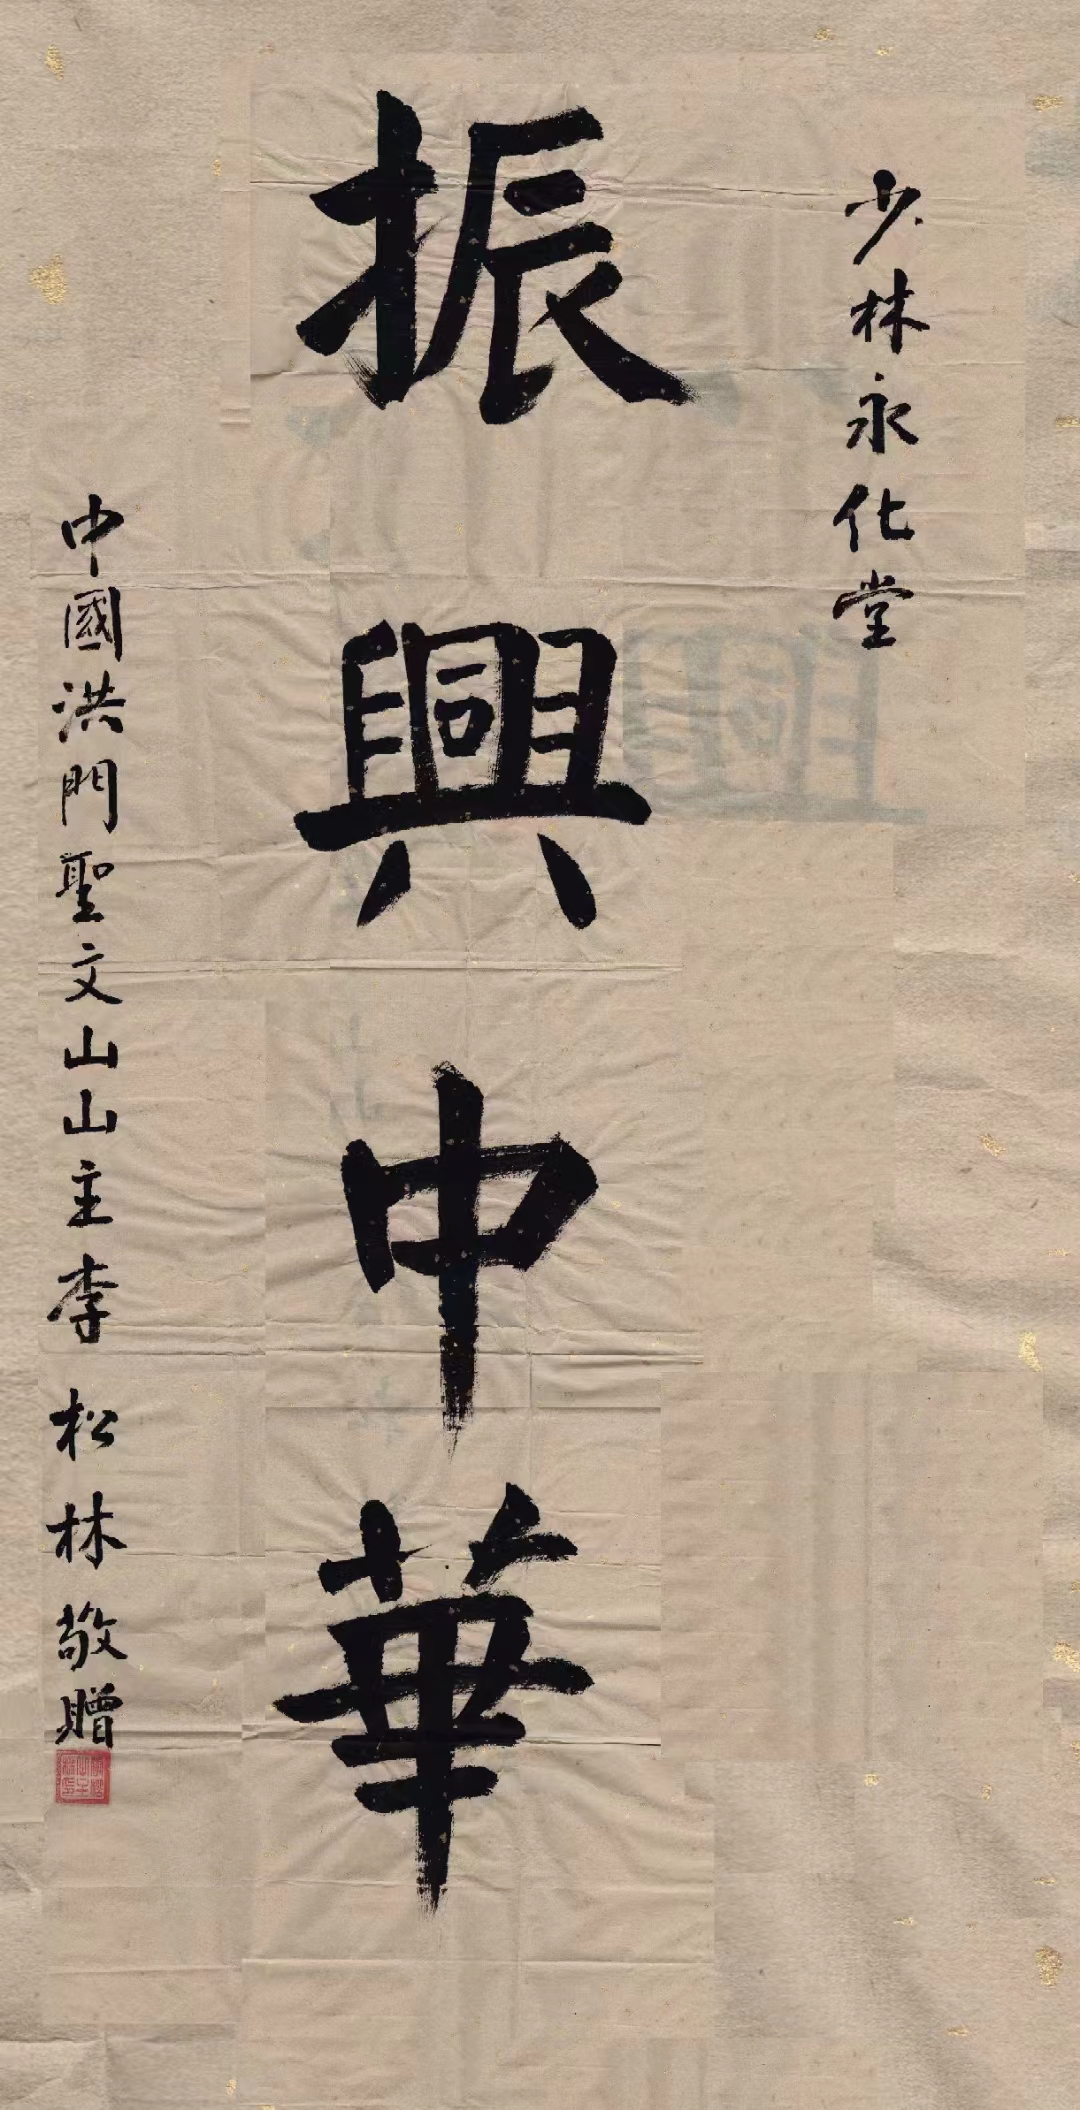 少林永化堂
振興中華
中國洪門聖文山山主李松林敬贈